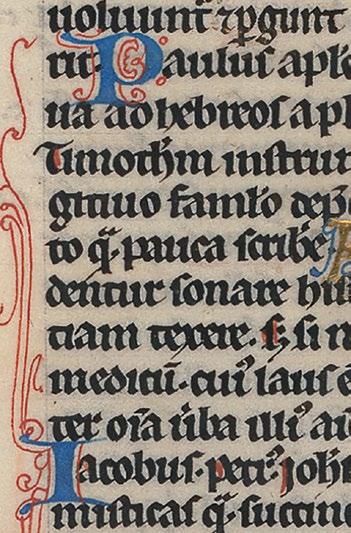 uoluunt ⁊ pgunt
rit. Paulus apło
ua ad hebreos apl
Timothm instrut
gitiuo famlo dep̄
to q̄. pauca scribe
dentur sonare his
ciam texere. S; si n
medicū. cui᷒ laus e
ter oīa ūba illi᷒ au
Iacobus. petr᷒. joh̄
misticas q̄. succinc